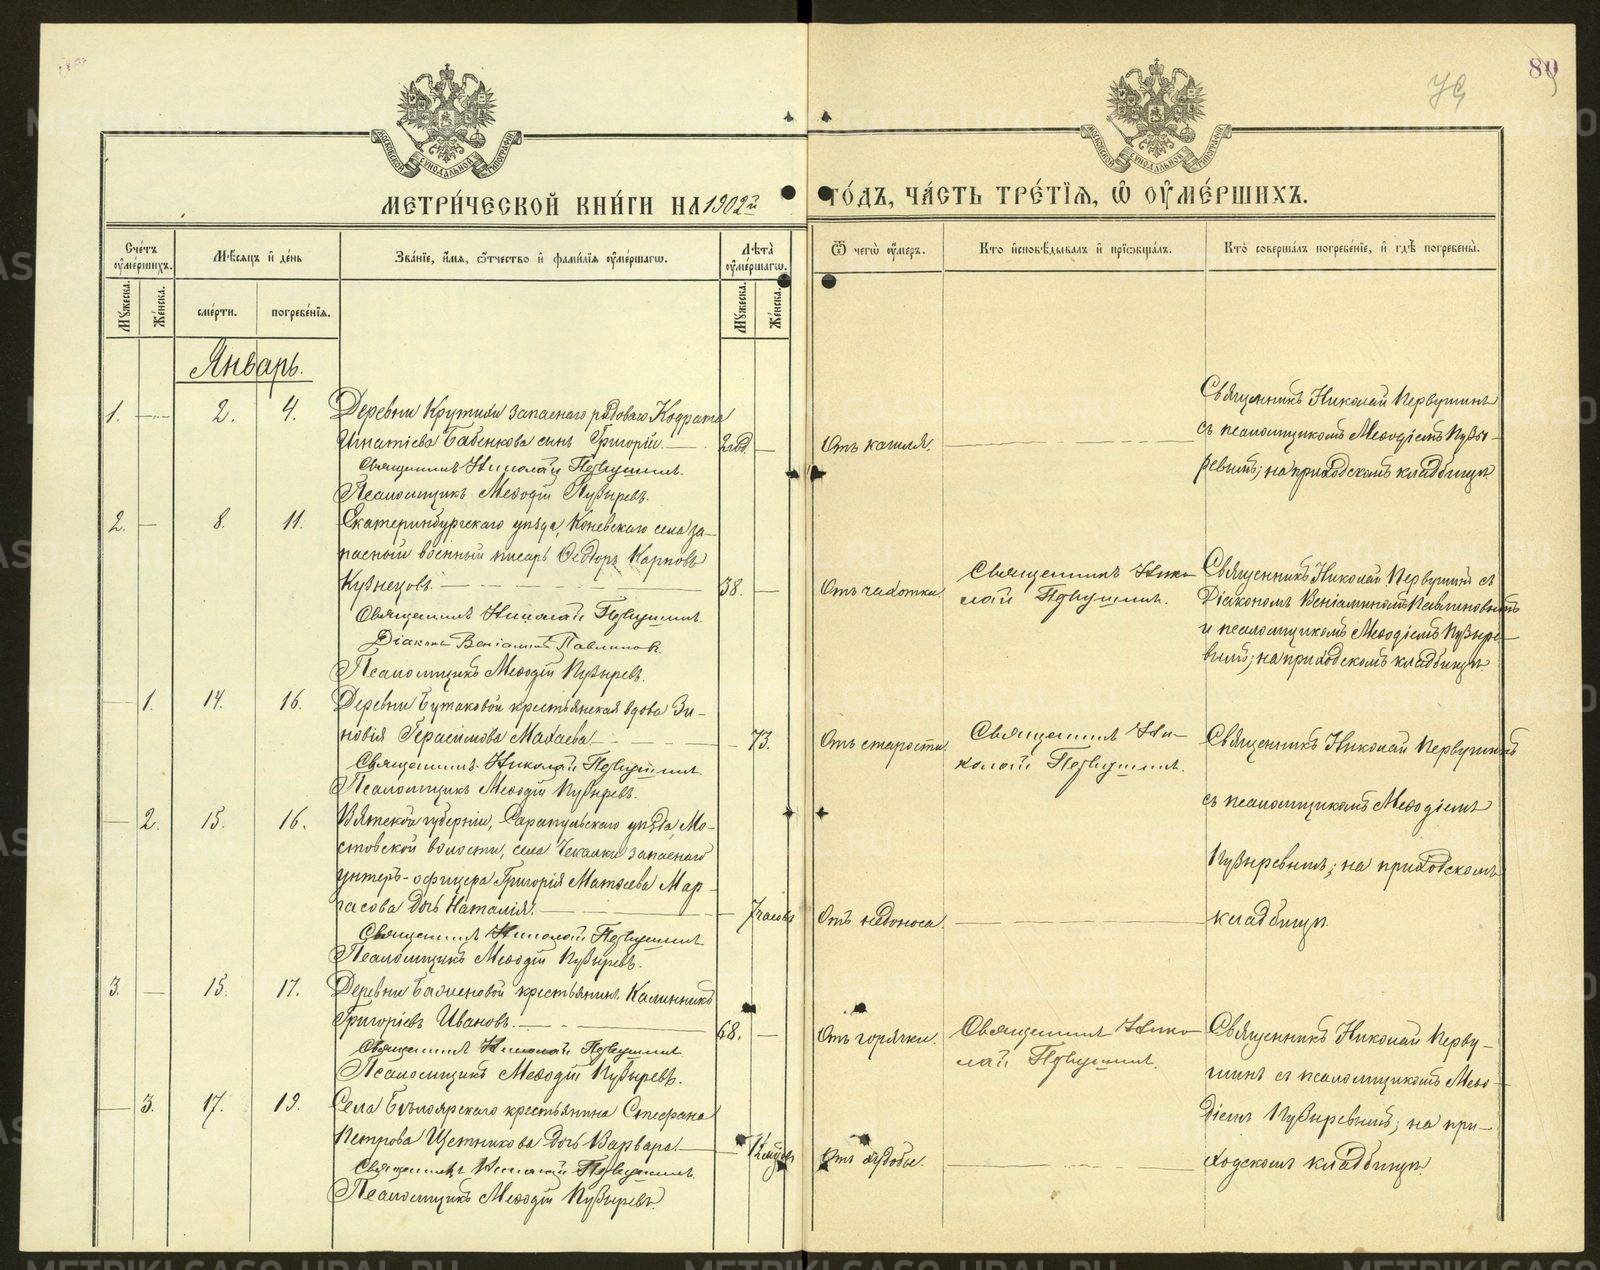 80
79
МЕТРИ́ЧЕСКОЙ КНИ́ГИ НА 1902й ГО́ДЪ, ЧА́СТЬ ТРЕ́ТІѦ, Ѡ ОУМЕ́РШИХЪ.
Счетъ оумершихъ.
Мѣсяцъ и день
Званіе, имя, отчество и фамилія оумершагѡ.
Лѣта оумершагѡ.
Ѿ чегѡ оумеръ.
Кто исповѣдывалъ и пріобщалъ.
Кто совершалъ погребеніе, и гдѣ погребены.
Мужеска.
Женска.
смерти.
погребенія.
Мужеска.
Женска.
Январь.
1. — 2. 4.
Деревни Крутихи запаснаго рядоваго Кодрата
Игнатіева Бабенкова сынъ Григорій. — 2 год. —
Священникъ Николай Первушинъ.
Псаломщикъ Меѳодій Пузыревъ.
Отъ кашля.
Священникъ Николай Первушинъ
съ псаломщикомъ Меѳодіемъ Пузы-
ревымъ; на приходскомъ кладбищѣ.
2. — 8. 11.
Екатеринбургскаго уѣзда, Коневскаго села за-
пасный военный писарь Ѳеодоръ Карповъ
Кузнецовъ. — 38. —
Священникъ Николай Первушинъ.
Діаконъ Веніаминъ Павлиновъ.
Псаломщикъ Меѳодій Пузыревъ.
Отъ чахотки.
Священникъ Нико-
лай Первушинъ.
Священникъ Николай Первушинъ съ
Діакономъ Веніаминомъ Павлиновымъ
и псаломщикомъ Меѳодіемъ Пузыре-
вымъ; на приходскомъ кладбищѣ.
— 1. 14. 16.
Деревни Бутаковой крестьянская вдова Зи-
новія Герасимова Махаева — 73.
Священникъ Николай Первушинъ.
Псаломщикъ Меѳодій Пузыревъ.
Отъ старости.
Священникъ Ни-
колай Первушинъ.
Священникъ Николай Первушинъ
съ псаломщикомъ Меѳодіемъ
Пузыревымъ; на приходскомъ
кладбищѣ.
— 2. 15. 16.
Вятской губерніи, Сарапульскаго уѣзда, Мо-
стовской волости, села Чекалки запаснаго
унтеръ-офицера Григорія Матѳеева Мар-
гасова дочь Наталія. — 7 часовъ
Священникъ Николай Первушинъ
Псаломщикъ Меѳодій Пузыревъ.
Отъ недоноса.
3. — 15. 17.
Деревни крестьянинъ Калинникъ
Григоріевъ Ивановъ. — 68. —
Священникъ Николай Первушинъ
Псаломщикъ Меѳодій Пузыревъ.
Отъ горячки.
Священникъ Нико-
лай Первушинъ.
Священникъ Николай Перву-
шинъ съ псаломщикомъ Меѳо-
діемъ Пузыревымъ; на при-
ходскомъ кладбищѣ.
— 3. 17. 19.
Села Бѣлоярскаго крестьянина Стефана
Петрова Щетникова дочь Варвара. —
Священникъ Николай Первушинъ.
Псаломщикъ Меѳодій Пузыревъ.
Отъ худобы.